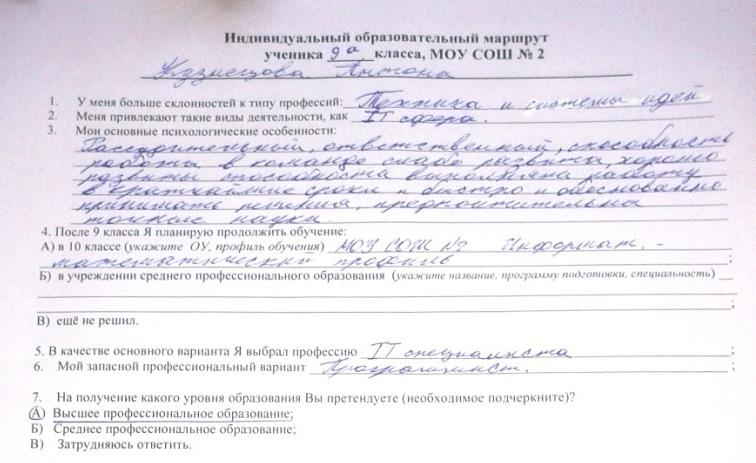 Индивидуальный образовательный маршрут
ученика 9а класса, МОУ СОШ № 2
Кузнецова Антона
1. У меня больше склонностей к типу профессий: Техника и системы идей
2. Меня привлекают такие виды деятельности, как IT сфера.
3. Мои основные психологические особенности:
Рассудительный, ответственный, способность
работы в команде слабо развита, хорошо
развиты способности выполнять работу
в кратчайшие сроки и быстро и обоснованно
принимать решения, предпочтительны
точные науки.
4. После 9 класса Я планирую продолжить обучение:
А) в 10 классе (укажите ОУ, профиль обучения) МОУ СОШ №2 Информат. -
математический профиль ;
Б) в учреждении среднего профессионального образования (укажите название, программу подготовки, специальность)
;
В) ещё не решил.
5. В качестве основного варианта Я выбрал профессию IT специалиста ;
6. Мой запасной профессиональный вариант Программист. ;
7. На получение какого уровня образования Вы претендуете (необходимое подчеркните)?
А) Высшее профессиональное образование;
Б) Среднее профессиональное образование;
В) Затрудняюсь ответить.